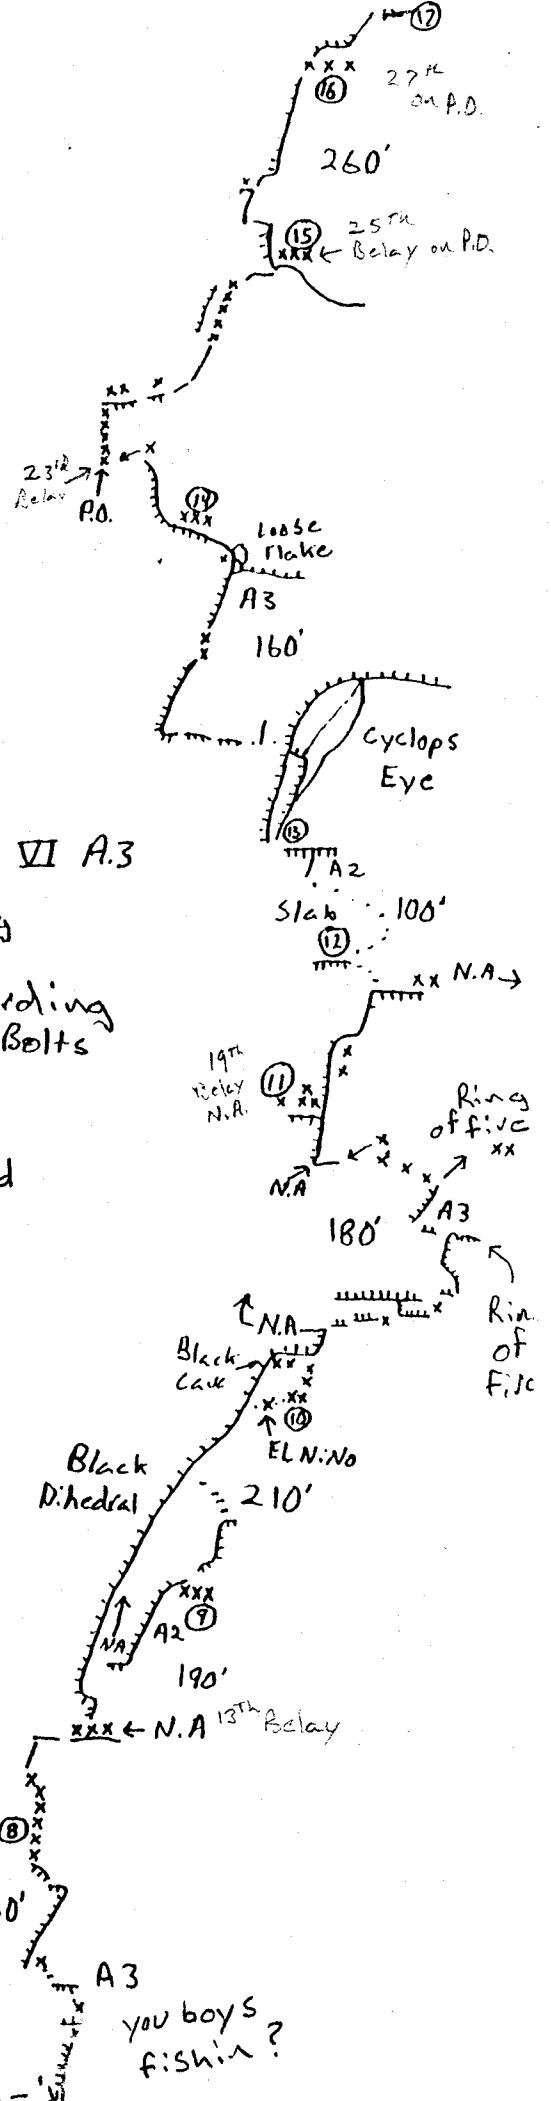 17
16
27th
on P.O.
260'
15
25th
Belay on P.O.
23rd
Belay
P.O.
14
Loose
Flake
A3
160'
Cyclops
Eye
13
VI A.3
A2
Slab
100'
12
N.A
rding
Bolts
19th
Belay
N.A.
11
Ring
of five
N.A
d
A3
180'
Rin
of
Fire
N.A
Black
Cave
10
EL NiNo
Black
Dihedral
210'
9
A2
NA
190'
N.A 13th Belay
8
0'
A3
you boys
fishin?